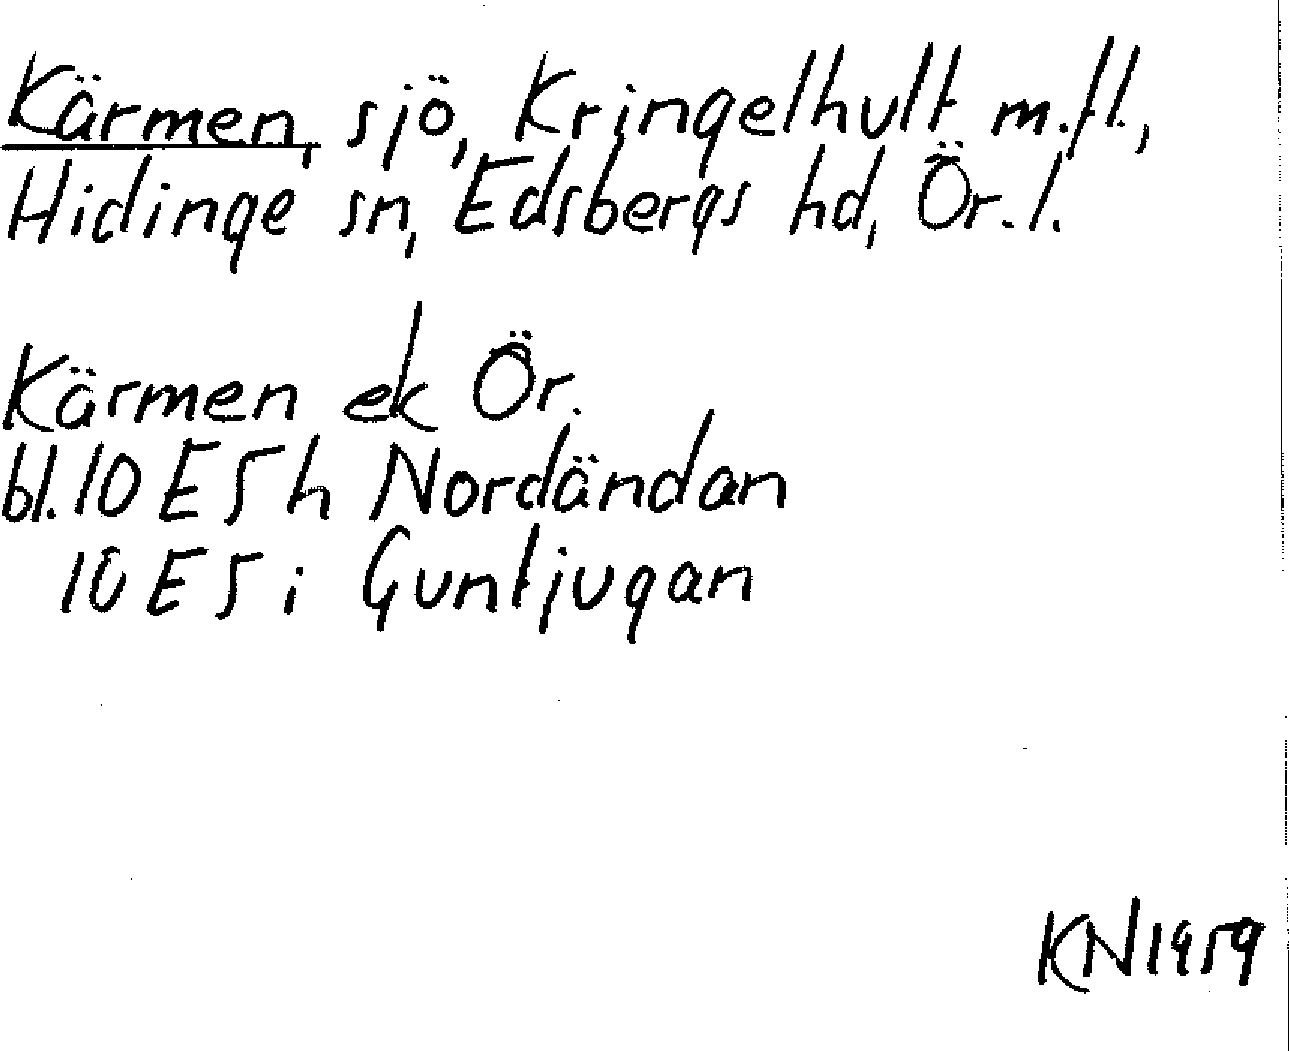 Kärmen, sjö, Kringelhult m.fl.,
Hidinge sn, Edsbergs hd, Ör.l.
Kärmen ek Ör.
bl. 10 E 5 h Nordändan
10 E 5 i Guntjugan
KN 1959